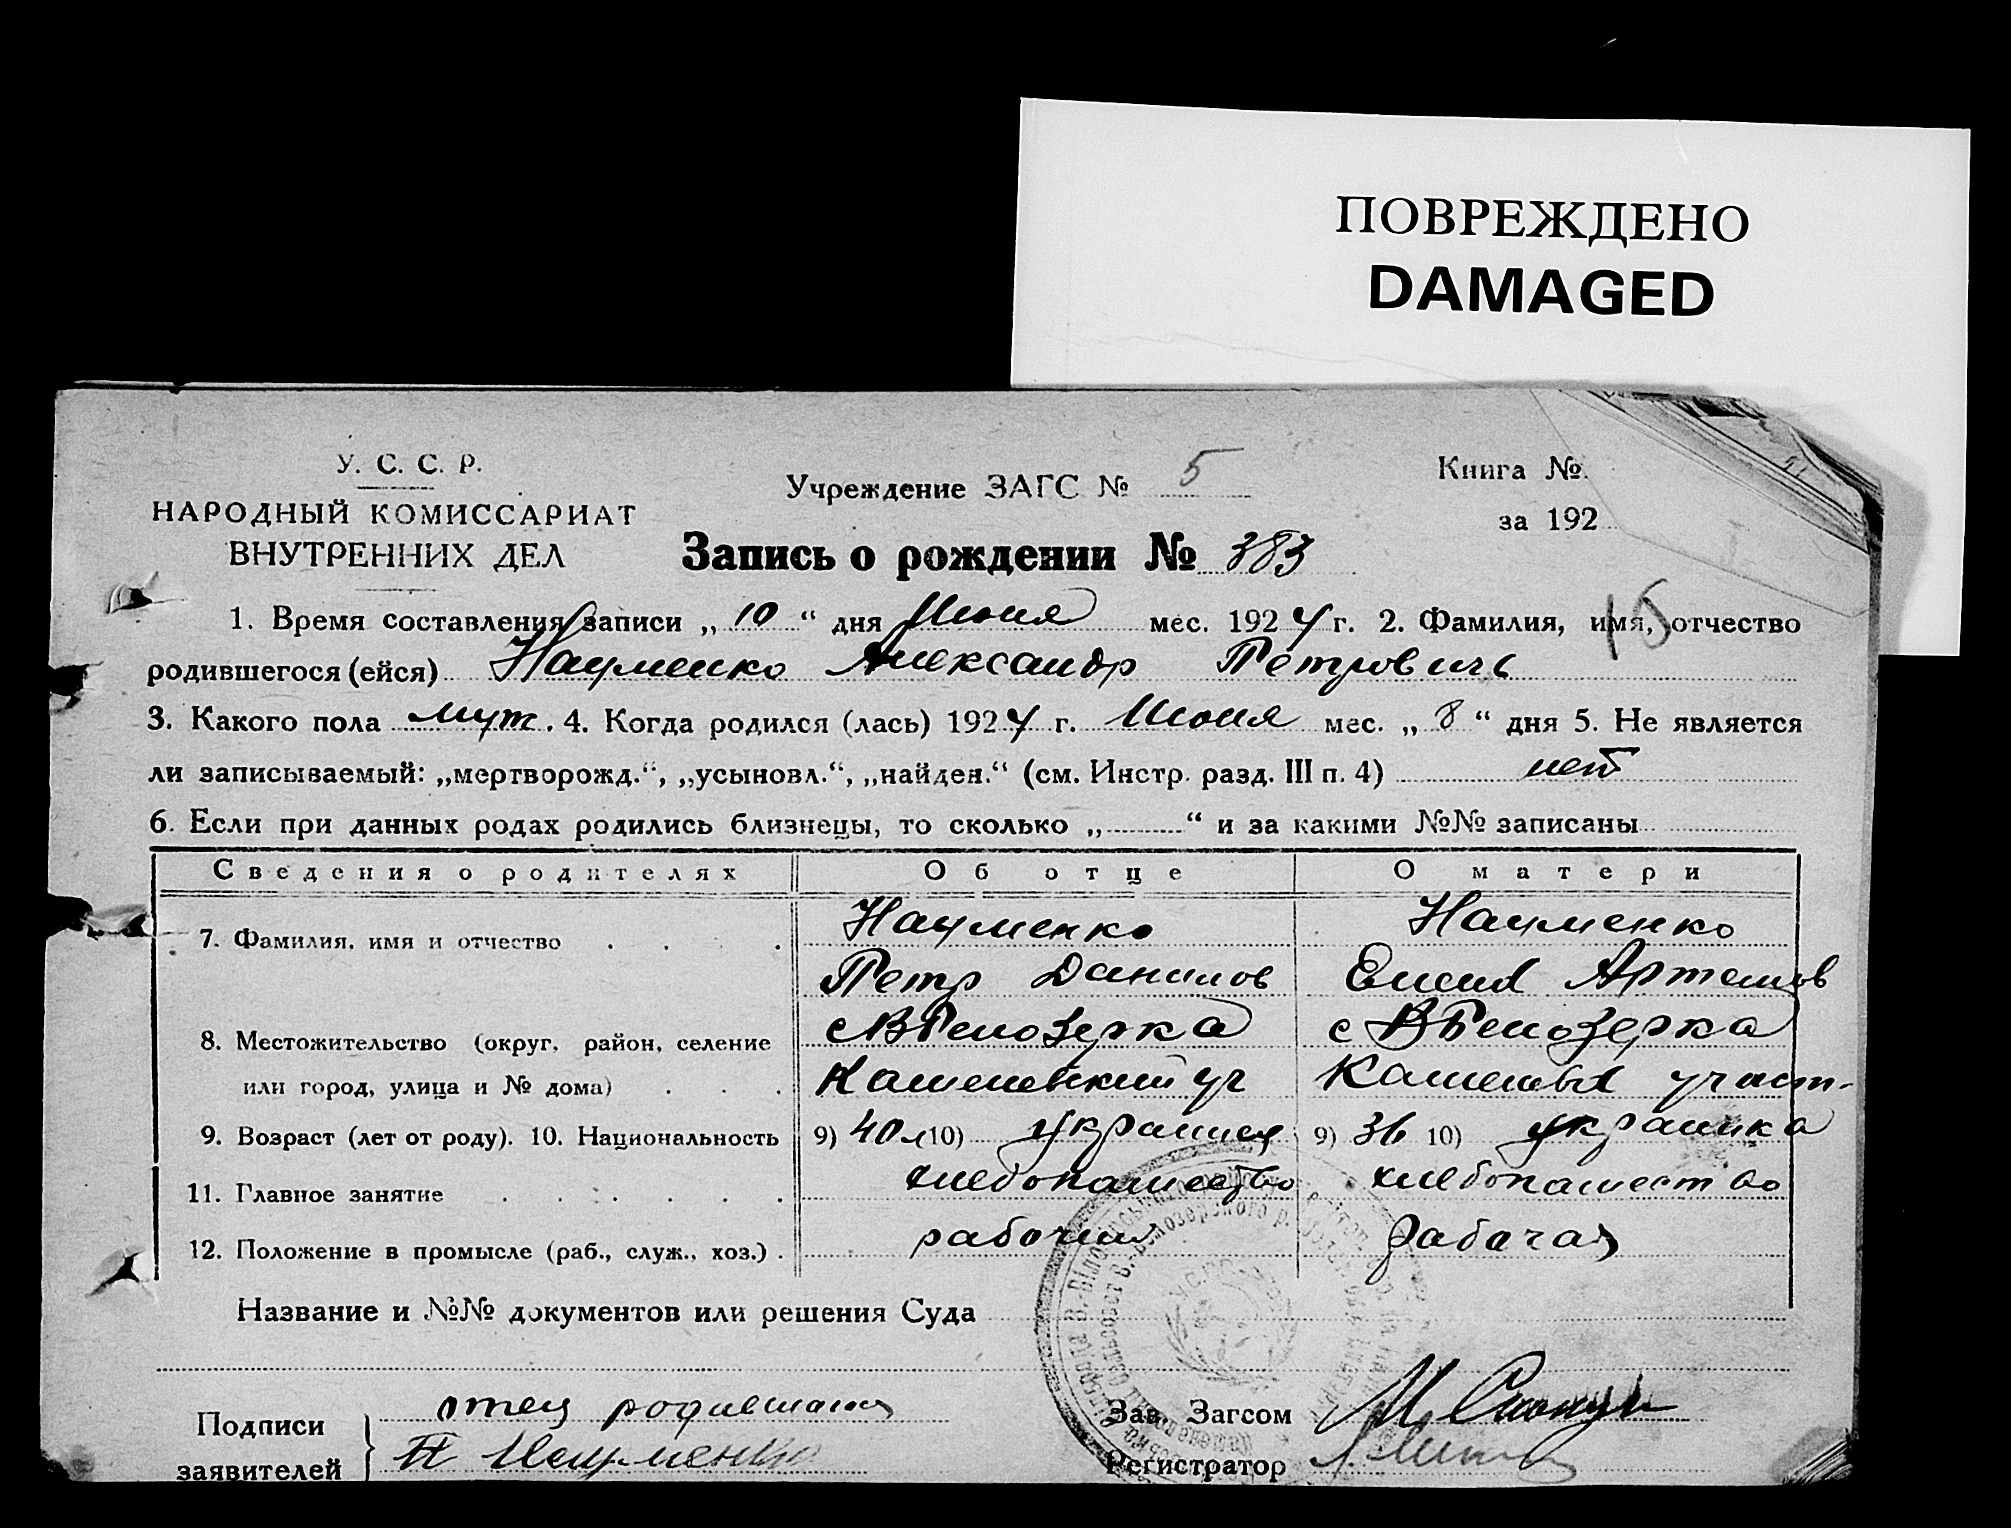 ПОВРЕЖДЕНО
DAMAGED
У. С. С. Р.
НАРОДНЫЙ КОМИССАРИАТ
ВНУТРЕННИХ ДЕЛ
Учреждение ЗАГС № 5
Книга №
за 192
Запись о рождении № 383
15
1. Время составления записи „ 10 “ дня Июня мес. 1924 г. 2. Фамилия, имя, отчество
родившегося (ейся) Науменко Александр Петровичь
3. Какого пола муж. 4. Когда родился (лась) 1924 г. Июня мес. „ 8 “ дня 5. Не является
ли записываемый: „мертворожд.“, „усыновл.“, „найден.“ (см. Инстр. разд. III п. 4) нет
6. Если при данных родах родились близнецы, то сколько „ “ и за какими №№ записаны
Сведения о родителях Об отце О матери
7. Фамилия, имя и отчество Науменко Науменко
Петр Данилов Елена Артемов
8. Местожительство (округ, район, селение с ВБелозерка с ВБелозерка
или город, улица и № дома) Каменский уч участ-
9. Возраст (лет от роду). 10. Национальность 9) 40 л 10) украинец 9) 36 10) украинка
11. Главное занятие хлебопашество хлебопашество
12. Положение в промысле (раб., служ., хоз.) рабочий рабочая
Название и №№ документов или решения Суда
Подписи
заявителей
отец
П Науменко
Зав. Загсом М
Регистратор